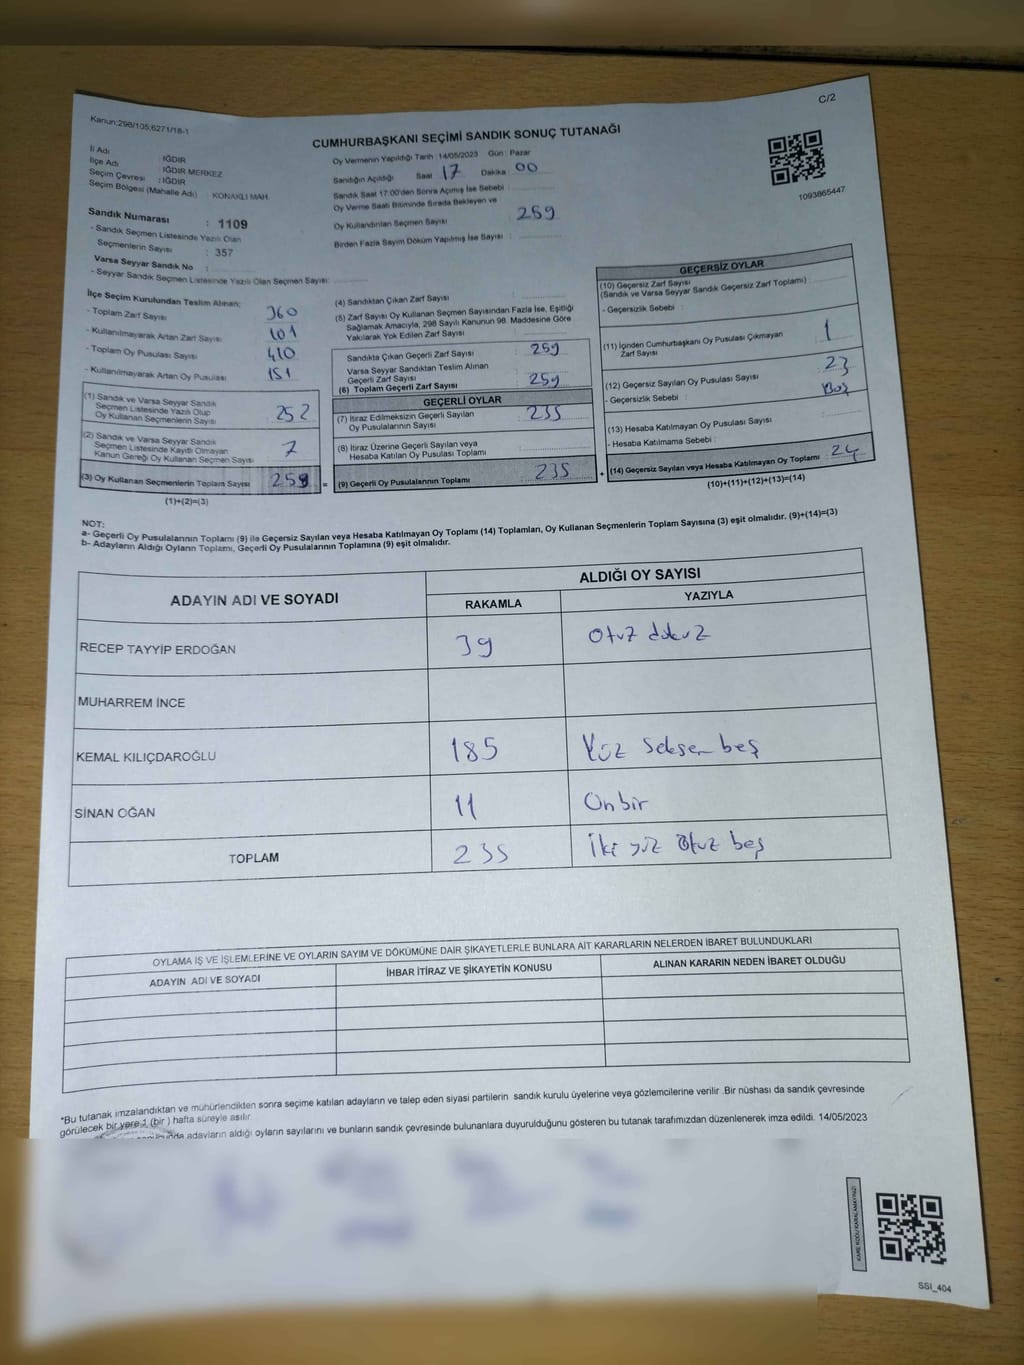 Kanun;298/105;6271/18-1
C/2
CUMHURBAŞKANI SEÇİMİ SANDIK SONUÇ TUTANAĞI
İl Adı : IĞDIR
İlçe Adı : IĞDIR MERKEZ
Seçim Çevresi : IĞDIR
Seçim Bölgesi (Mahalle Adı) : KONAKLI MAH.
Sandık Numarası : 1109
- Sandık Seçmen Listesinde Yazılı Olan
Seçmenlerin Sayısı : 357
Varsa Seyyar Sandık No :
- Seyyar Sandık Seçmen Listesinde Yazılı Olan Seçmen Sayısı:
Oy Vermenin Yapıldığı Tarih :14/05/2023 Gün : Pazar
Sandığın Açıldığı Saat 17 Dakika 00
Sandık Saat 17:00'den Sonra Açılmış İse Sebebi :
Oy Verme Saati Bitiminde Sırada Bekleyen ve
Oy Kullandırılan Seçmen Sayısı : 259
Birden Fazla Sayım Döküm Yapılmış İse Sayısı :
1093865447
İlçe Seçim Kurulundan Teslim Alınan;
- Toplam Zarf Sayısı : 360
- Kullanılmayarak Artan Zarf Sayısı : 101
- Toplam Oy Pusulası Sayısı : 410
- Kullanılmayarak Artan Oy Pusulası : 151
(1) Sandık ve Varsa Seyyar Sandık
Seçmen Listesinde Yazılı Olup
Oy Kullanan Seçmenlerin Sayısı : 252
(2) Sandık ve Varsa Seyyar Sandık
Seçmen Listesinde Kayıtlı Olmayan
Kanun Gereği Oy Kullanan Seçmen Sayısı : 7
(3) Oy Kullanan Seçmenlerin Toplam Sayısı : 259
(1)+(2)=(3)
(4) Sandıktan Çıkan Zarf Sayısı :
(5) Zarf Sayısı Oy Kullanan Seçmen Sayısından Fazla İse, Eşitliği
Sağlamak Amacıyla, 298 Sayılı Kanunun 98. Maddesine Göre
Yakılarak Yok Edilen Zarf Sayısı :
Sandıkta Çıkan Geçerli Zarf Sayısı : 259
Varsa Seyyar Sandıktan Teslim Alınan
Geçerli Zarf Sayısı :
(6) Toplam Geçerli Zarf Sayısı : 259
GEÇERLİ OYLAR
(7) İtiraz Edilmeksizin Geçerli Sayılan
Oy Pusulalarının Sayısı : 235
(8) İtiraz Üzerine Geçerli Sayılan veya
Hesaba Katılan Oy Pusulası Toplamı :
= (9) Geçerli Oy Pusulalarının Toplamı : 235
GEÇERSİZ OYLAR
(10) Geçersiz Zarf Sayısı
(Sandık ve Varsa Seyyar Sandık Geçersiz Zarf Toplamı) :
- Geçersizlik Sebebi :
(11) İçinden Cumhurbaşkanı Oy Pusulası Çıkmayan
Zarf Sayısı : 1
(12) Geçersiz Sayılan Oy Pusulası Sayısı : 23
- Geçersizlik Sebebi : Boş
(13) Hesaba Katılmayan Oy Pusulası Sayısı
- Hesaba Katılmama Sebebi :
+ (14) Geçersiz Sayılan veya Hesaba Katılmayan Oy Toplamı : 24
(10)+(11)+(12)+(13)=(14)
NOT:
a- Geçerli Oy Pusulalarının Toplamı (9) ile Geçersiz Sayılan veya Hesaba Katılmayan Oy Toplamı (14) Toplamları, Oy Kullanan Seçmenlerin Toplam Sayısına (3) eşit olmalıdır. (9)+(14)=(3)
b- Adayların Aldığı Oyların Toplamı, Geçerli Oy Pusulalarının Toplamına (9) eşit olmalıdır.
ADAYIN ADI VE SOYADI
ALDIĞI OY SAYISI
RAKAMLA YAZIYLA
RECEP TAYYİP ERDOĞAN 39 Otuz dokuz
MUHARREM İNCE
KEMAL KILIÇDAROĞLU 185 Yüz Seksen beş
SİNAN OĞAN 11 Onbir
TOPLAM 235 İki yüz Otuz beş
OYLAMA İŞ VE İŞLEMLERİNE VE OYLARIN SAYIM VE DÖKÜMÜNE DAİR ŞİKAYETLERLE BUNLARA AİT KARARLARIN NELERDEN İBARET BULUNDUKLARI
ADAYIN ADI VE SOYADI İHBAR İTİRAZ VE ŞİKAYETİN KONUSU ALINAN KARARIN NEDEN İBARET OLDUĞU
*Bu tutanak imzalandıktan ve mühürlendikten sonra seçime katılan adayların ve talep eden siyasi partilerin sandık kurulu üyelerine veya gözlemcilerine verilir .Bir nüshası da sandık çevresinde
görülecek bir yere 1 (bir ) hafta süreyle asılır.
adayların aldığı oyların sayılarını ve bunların sandık çevresinde bulunanlara duyurulduğunu gösteren bu tutanak tarafımızdan düzenlenerek imza edildi. 14/05/2023
KARE KODU KARALAMAYINIZ!
SSİ_404